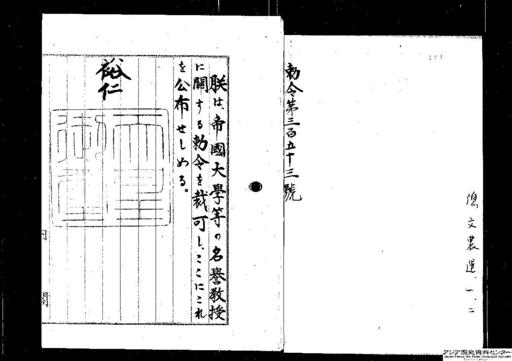 勅令第三百五十三號
朕は、帝國大學等の名譽教授
に關する勅令を裁可し、ここにこれ
を公布せしめる。
裕仁
天皇御璽
内閣
アジア歴史資料センター